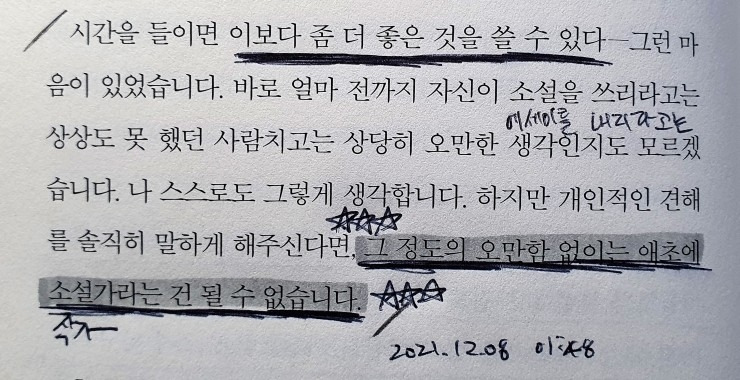 시간을 들이면 이보다 좀 더 좋은 것을 쓸 수 있다—그런 마
음이 있었습니다. 바로 얼마 전까지 자신이 소설을 쓰리라고는
에세이를 내리라고는
상상도 못 했던 사람치고는 상당히 오만한 생각인지도 모르겠
습니다. 나 스스로도 그렇게 생각합니다. 하지만 개인적인 견해
를 솔직히 말하게 해주신다면, 그 정도의 오만함 없이는 애초에
소설가라는 건 될 수 없습니다.
작가
2021.12.08